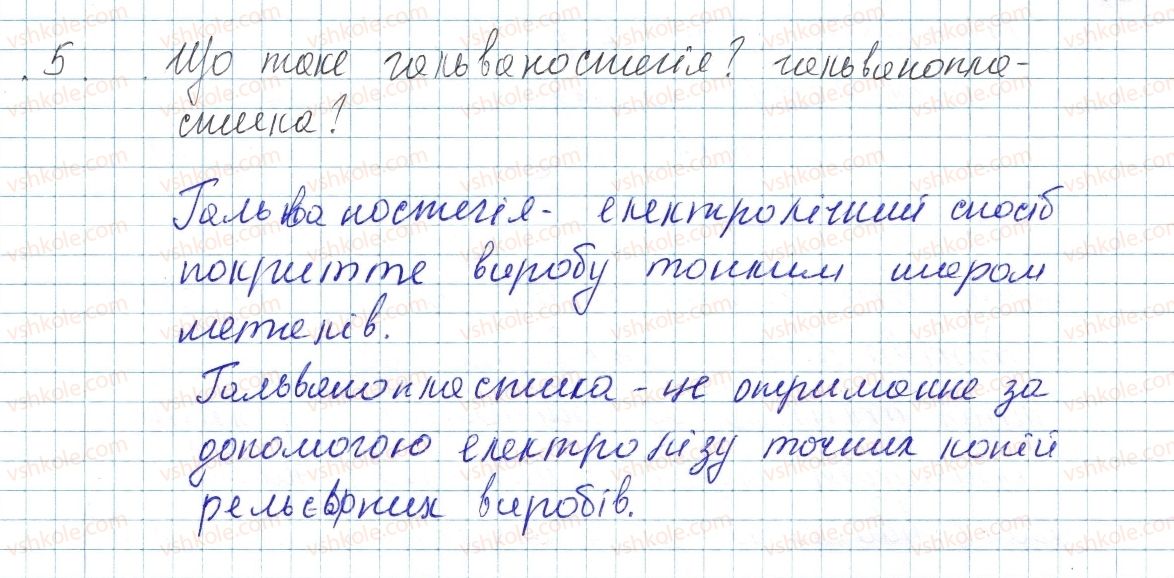 5. Що таке гальваностегія? гальванопла-
стика?
Гальваностегія - електролічний спосіб
покриття виробу тонким шаром
металів.
Гальванопластика - це отримання за
допомогою електролізу точних копій
рельєфних виробів.